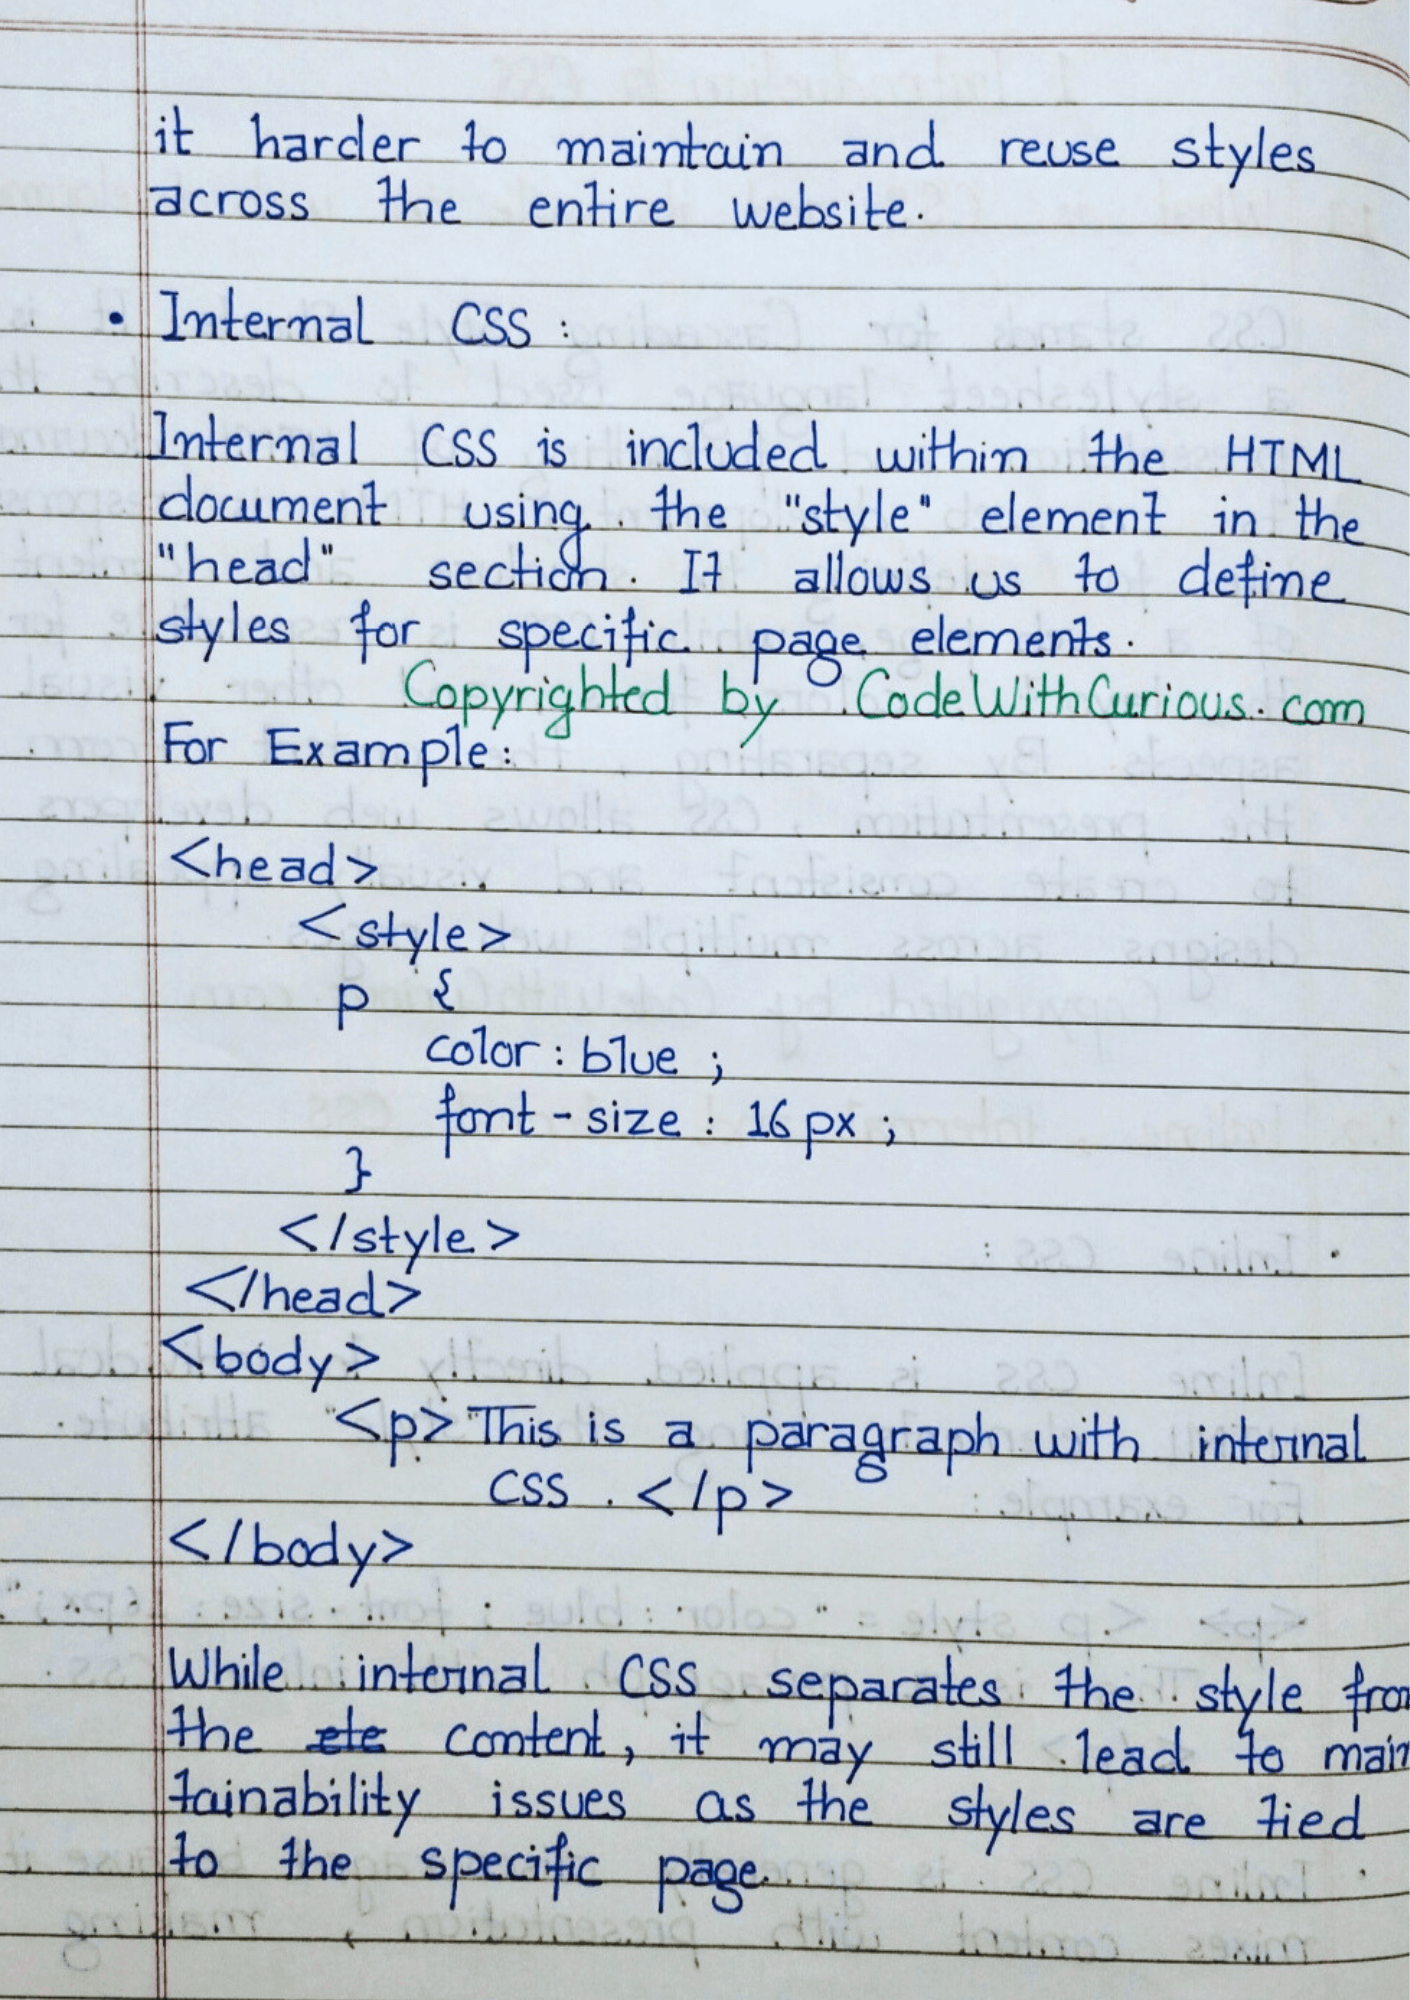 it harder to maintain and reuse styles
across the entire website.
• Internal CSS :
Internal CSS is included within the HTML
document using the "style" element in the
"head" section. It allows us to define
styles for specific page elements.
Copyrighted by CodeWithCurious.com
For Example:
<head>
<style>
p {
color : blue ;
font-size : 16px ;
}
</style>
</head>
<body>
<p> "This is a paragraph with internal
CSS . </p>
</body>
While internal CSS separates the style from
the ete content, it may still lead to main
tainability issues as the styles are tied
to the specific page.